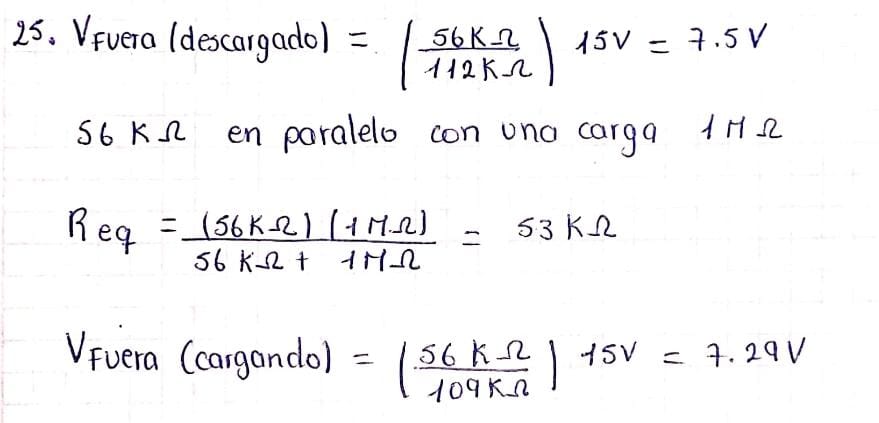 25. VFuera (descargado) = (56KΩ / 112KΩ) 15V = 7.5V
56 KΩ en paralelo con una carga 1MΩ
Req = (56KΩ) (1MΩ) / 56 KΩ + 1MΩ = 53 KΩ
VFuera (cargando) = (56 KΩ / 109KΩ) 15V = 7.29V